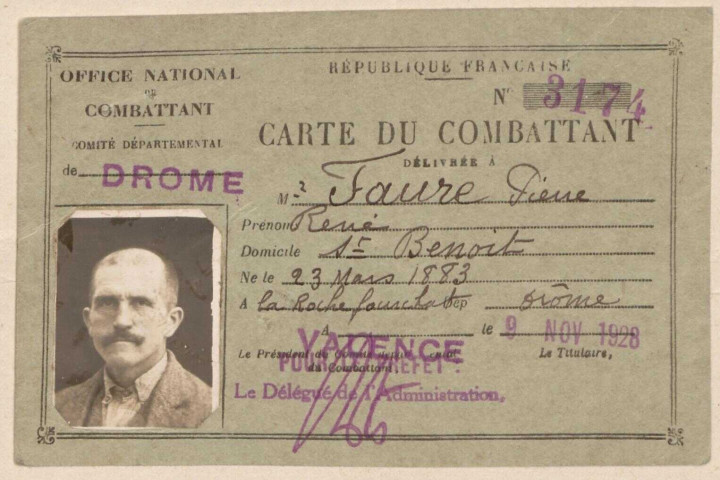 OFFICE NATIONAL
DU
COMBATTANT
COMITÉ DÉPARTEMENTAL
de DROME
RÉPUBLIQUE FRANÇAISE
N° 3174
CARTE DU COMBATTANT
DÉLIVRÉE À
Mr Faure Pierre
Prénom René
Domicile St Benoit
Né le 23 Mars 1883
A la Roche fourchat Dép Drôme
A VALENCE le 9 NOV 1928
Le Président du Comité départemental
du Combattant
Le Titulaire,
POUR LE PREFET:
Le Délégué de l'Administration,